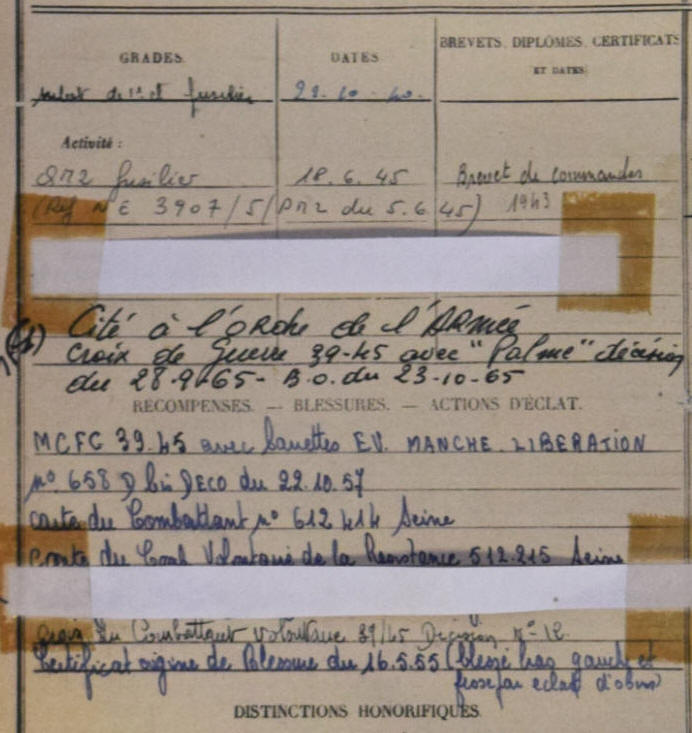 GRADES.
DATES
BREVETS, DIPLOMES, CERTIFICATS
ET DATES
fusilier
29.10.40.
Activité :
QM2 fusilier
18.6.45
Brevet de commandos
(Ref N E 3907/5/PM2 du 5.6.45)
1943
Cité à l'ORdre de l'ARmée
CROIX de Guerre 39-45 avec "Palme" décision
du 28-9-65- B.O. du 23-10-65
RÉCOMPENSES. — BLESSURES. — ACTIONS D'ÉCLAT.
MCFC 39.45 avec barrettes E.V. MANCHE. LIBERATION
n° 658 D bis DECO du 22.10.57
carte du Combattant n° 612 414 Seine
carte du Comb Volontaire de la Resistance 512.215 Seine
Croix du Combattant volontaire 39/45 Decision N° 12.
Certificat origine de Blessure du 16.5.55 (blessé bras gauche et
par eclat d'obus)
DISTINCTIONS HONORIFIQUES.